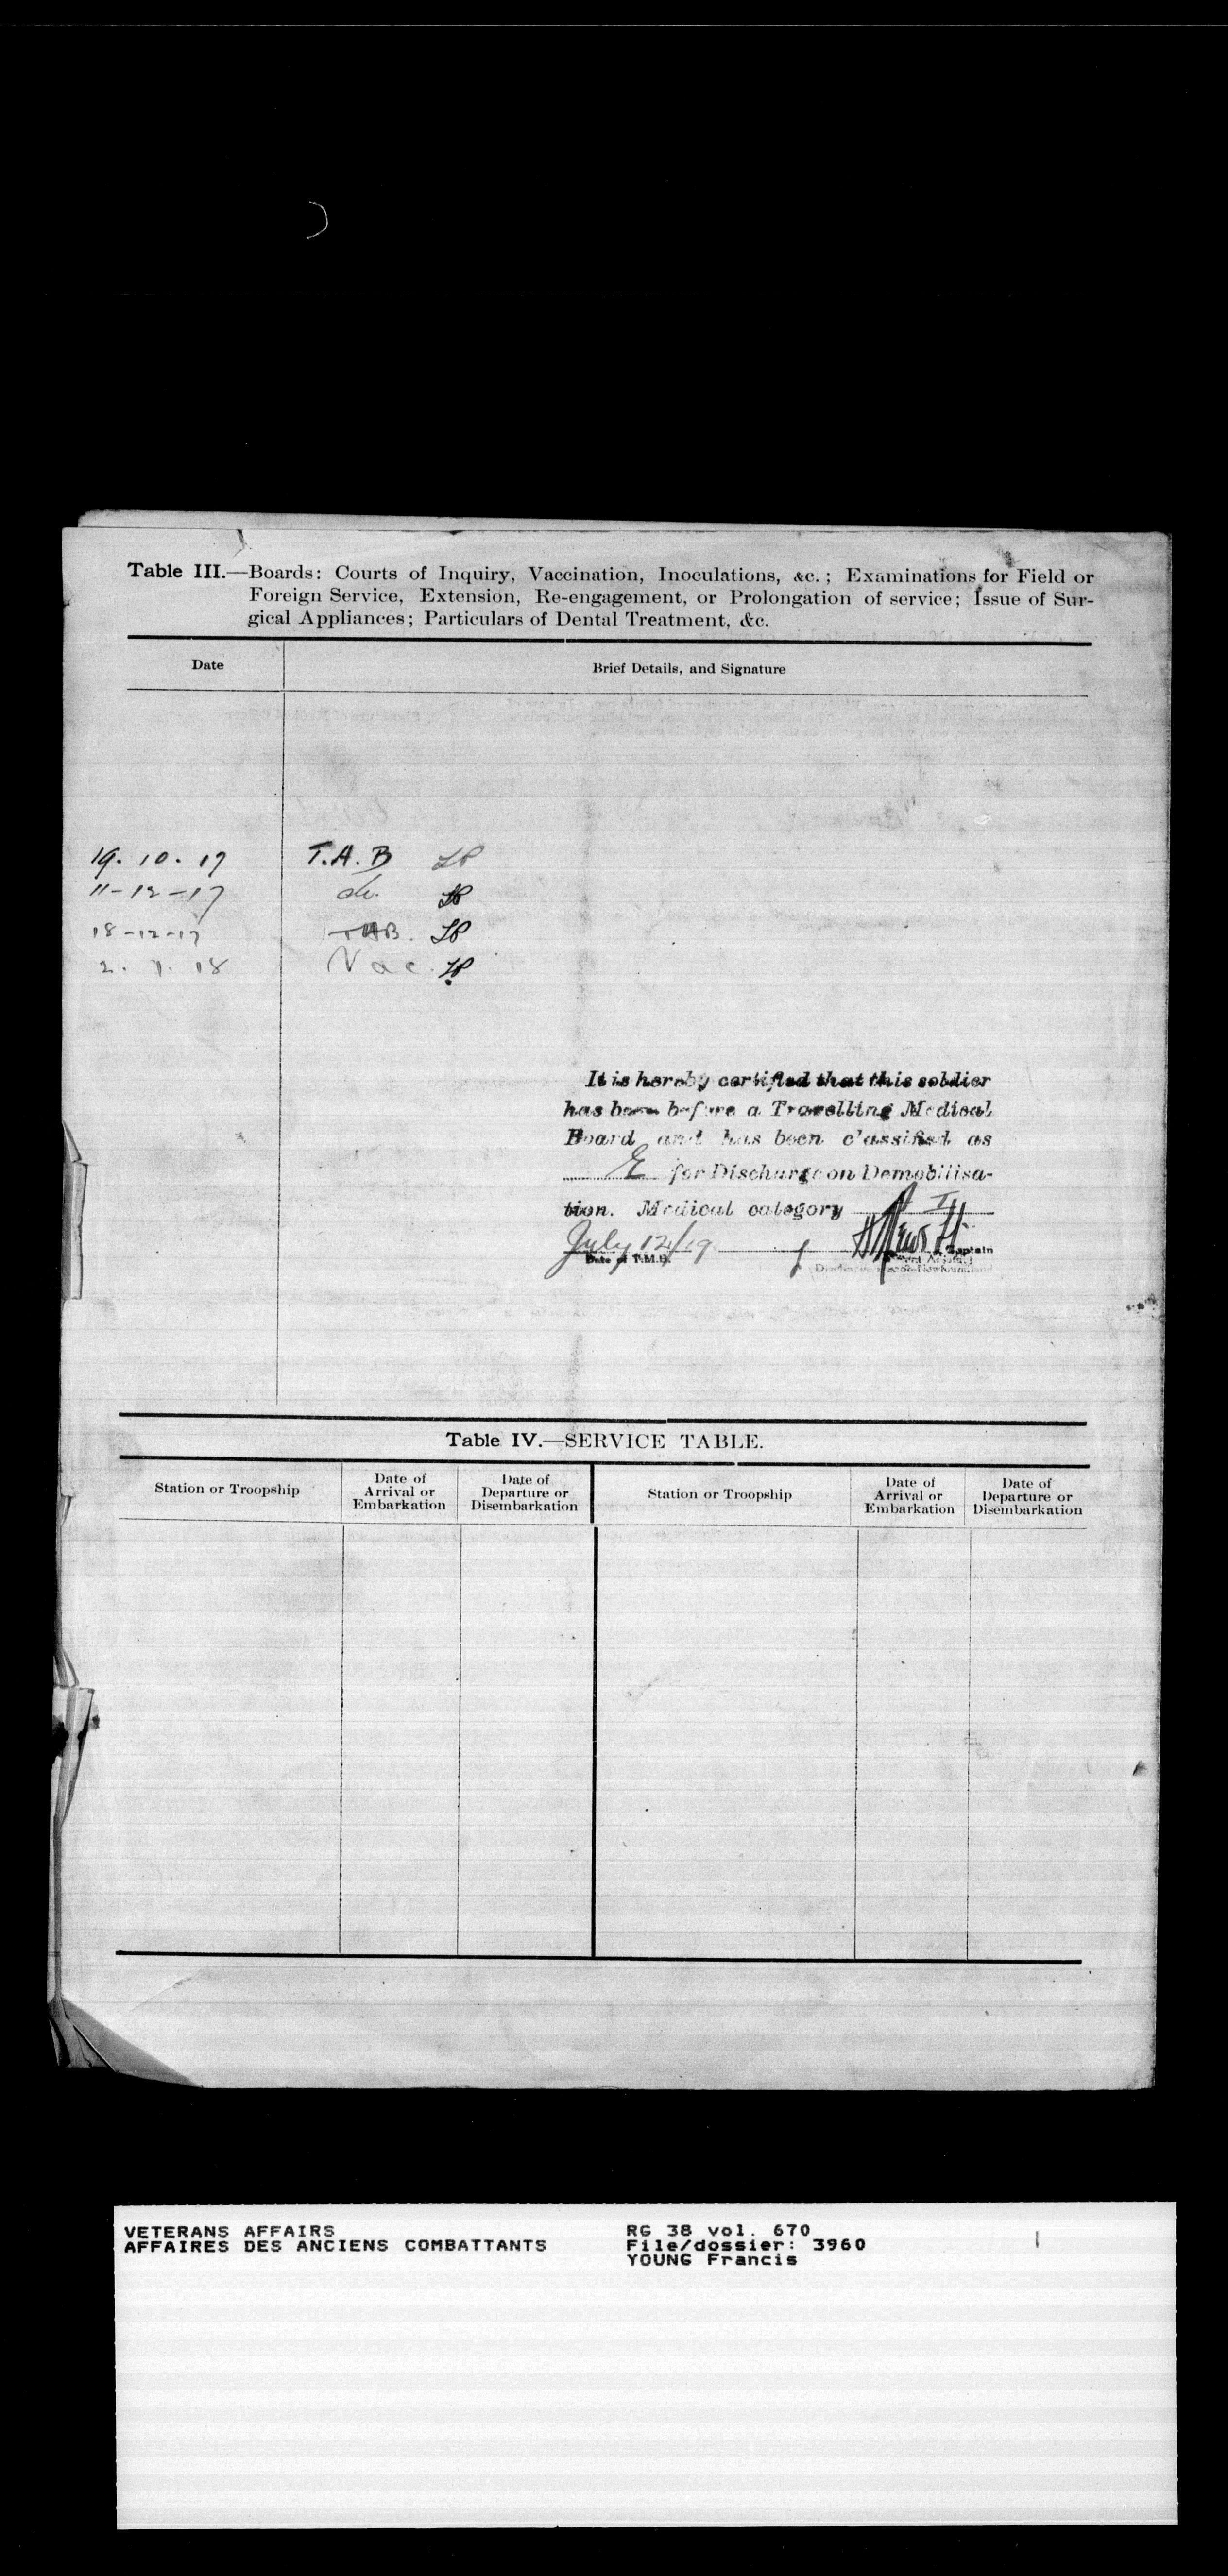 Table III.—Boards: Courts of Inquiry, Vaccination, Inoculations, &c.; Examinations for Field or
Foreign Service, Extension, Re-engagement, or Prolongation of service; Issue of Sur-
gical Appliances; Particulars of Dental Treatment, &c.
Date Brief Details, and Signature
19. 10. 17 T.A.B
11-12-17 do.
18-12-17 TAB.
2. 1. 18 Vac.
It is hereby certified that this soldier
has been before a Travelling Medical
Board and has been classified as
E for Discharge on Demobilisa-
tion. Medical category A II
July 12/19 Captain
Date of T.M.B.
Table IV.—SERVICE TABLE.
Station or Troopship Date of Arrival or Embarkation Date of Departure or Disembarkation Station or Troopship Date of Arrival or Embarkation Date of Departure or Disembarkation
VETERANS AFFAIRS RG 38 vol. 670
AFFAIRES DES ANCIENS COMBATTANTS File/dossier: 3960
YOUNG Francis